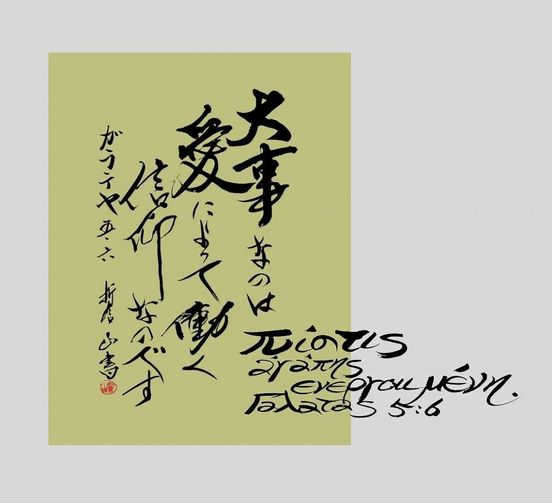 大事なのは
愛によって働く
信仰なのです
ガラテヤ五・六 哲山書
πίστις
ἀγάπης
ἐνεργουμένη.
Γαλατας 5:6